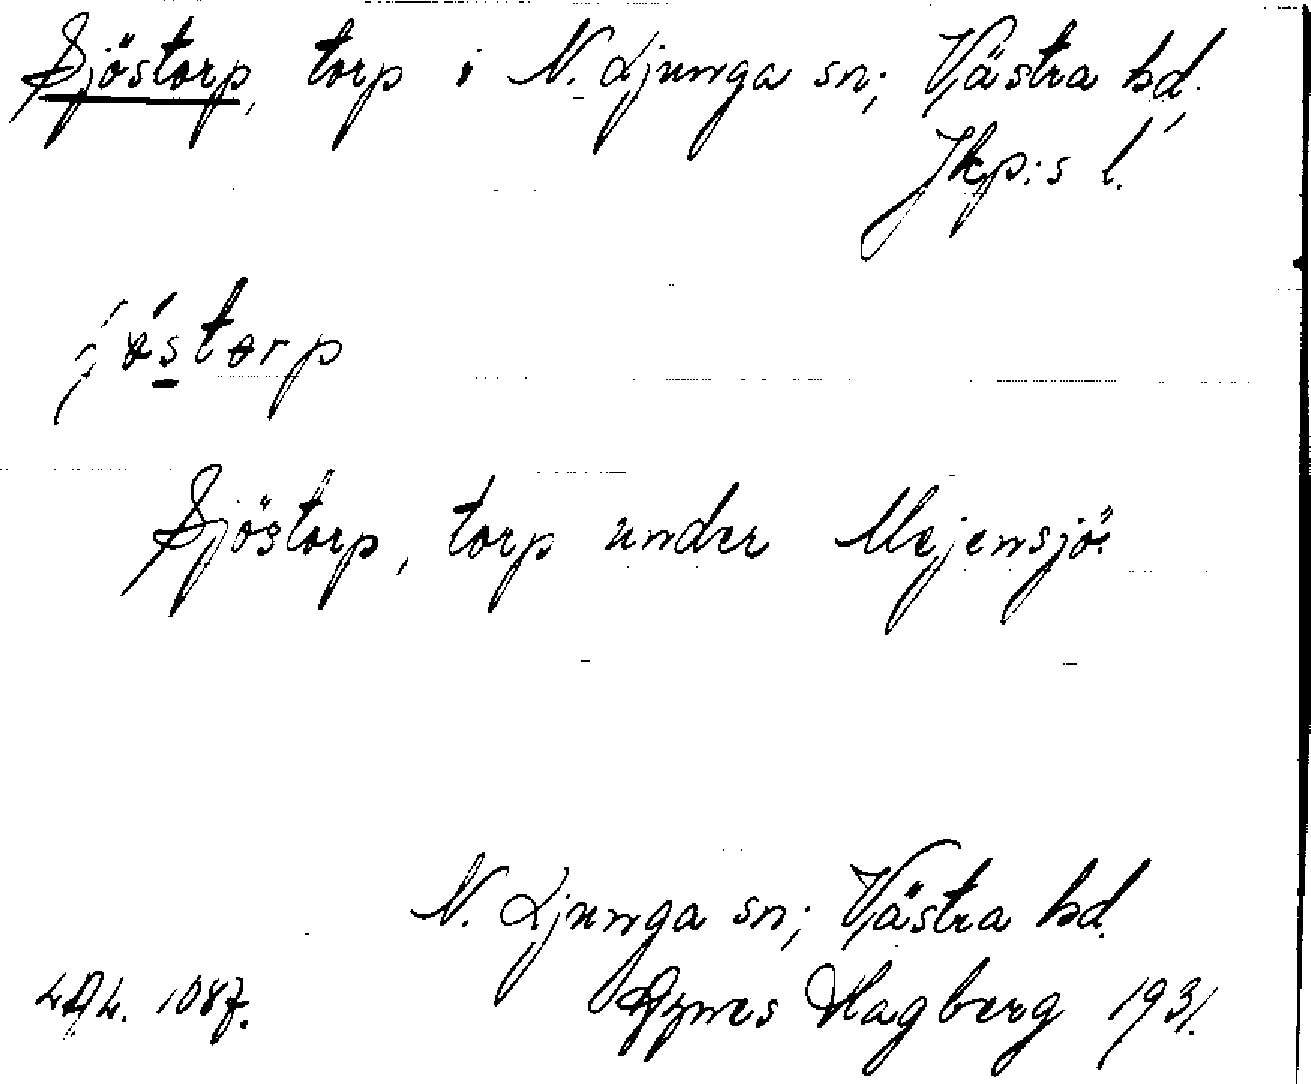 Sjöstorp, torp i N. Ljunga sn; Västra hd.
Jkp:s l.
Sjöstorp, torp under Mejensjö.
N. Ljunga sn; Västra hd.
Agnes Hagberg 1931.
1087.